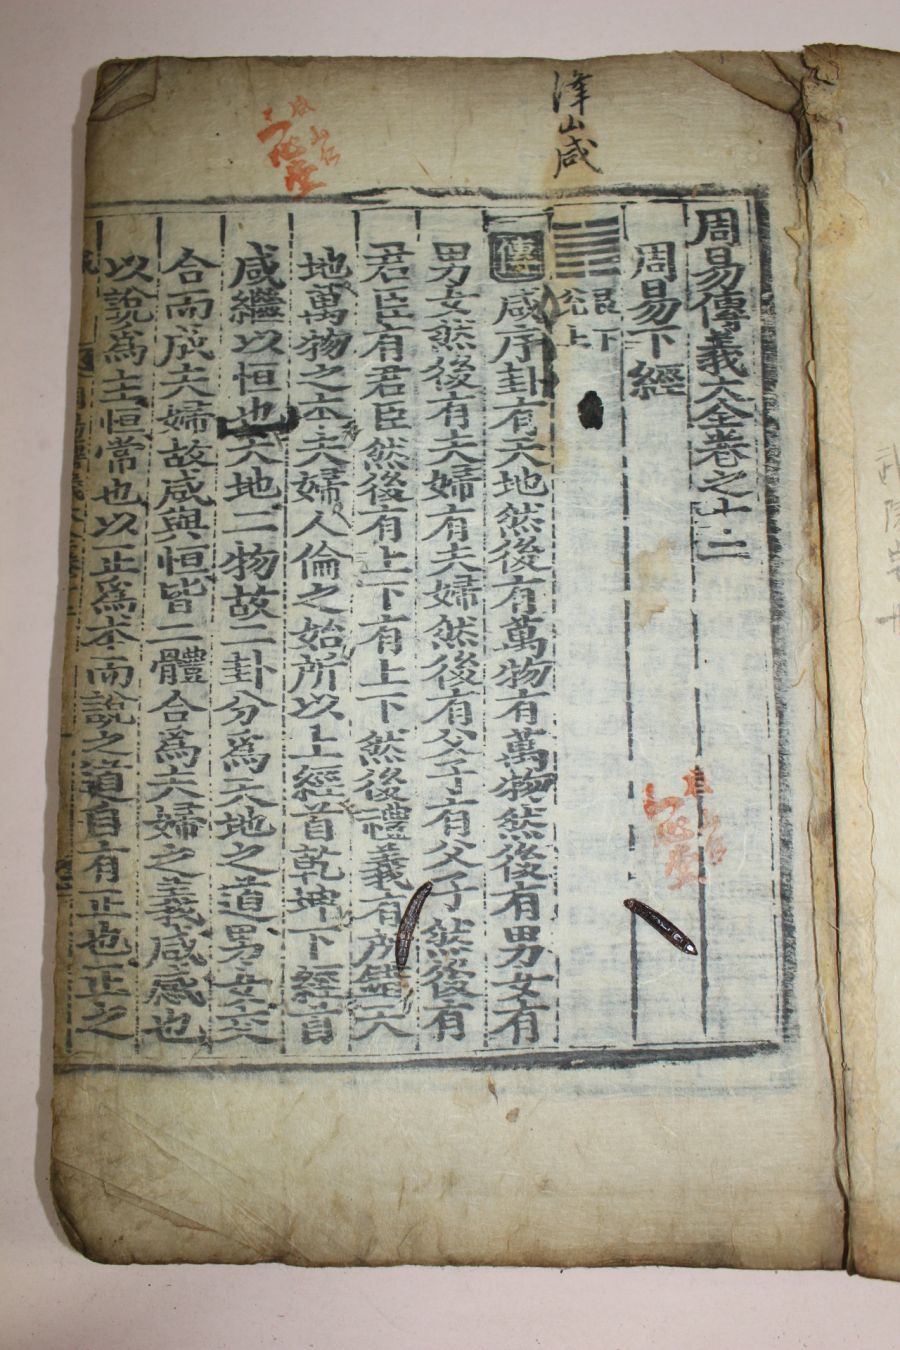 澤山咸
周易傳義大全卷之十二
周易下經
艮下
兌上
傳 咸序卦有天地然後有萬物有萬物然後有男女有
男女然後有夫婦有夫婦然後有父子有父子然後有
君臣有君臣然後有上下有上下然後禮義有所錯天
地萬物之本夫婦人倫之始所以上經首乾坤下經首
咸繼以恒也天地二物故二卦分爲天地之道男女交
合而成夫婦故咸與恒皆二體合爲夫婦之義咸感也
以說爲主恒常也以正爲本而說之道自有正也正之